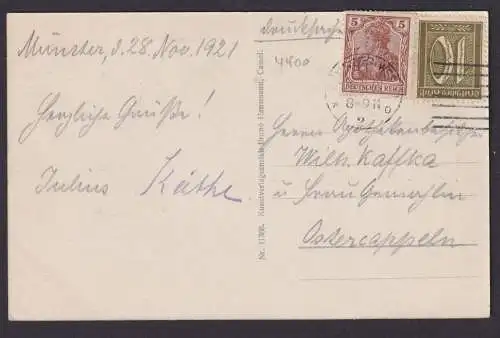 Münster, d. 28. Nov. 1921
Herzliche Grüße!
Julius Käthe
Drucksache
4400
5 5
DEUTSCHES REICH
10
8-9 N
Nr. 11308. Kunstverlagsanstalt Bruno Hansmann, Cassel.
Herrn Apothekenbesitzer
Wilh. Kaffka
u Frau Gemahlin
Ostercappeln